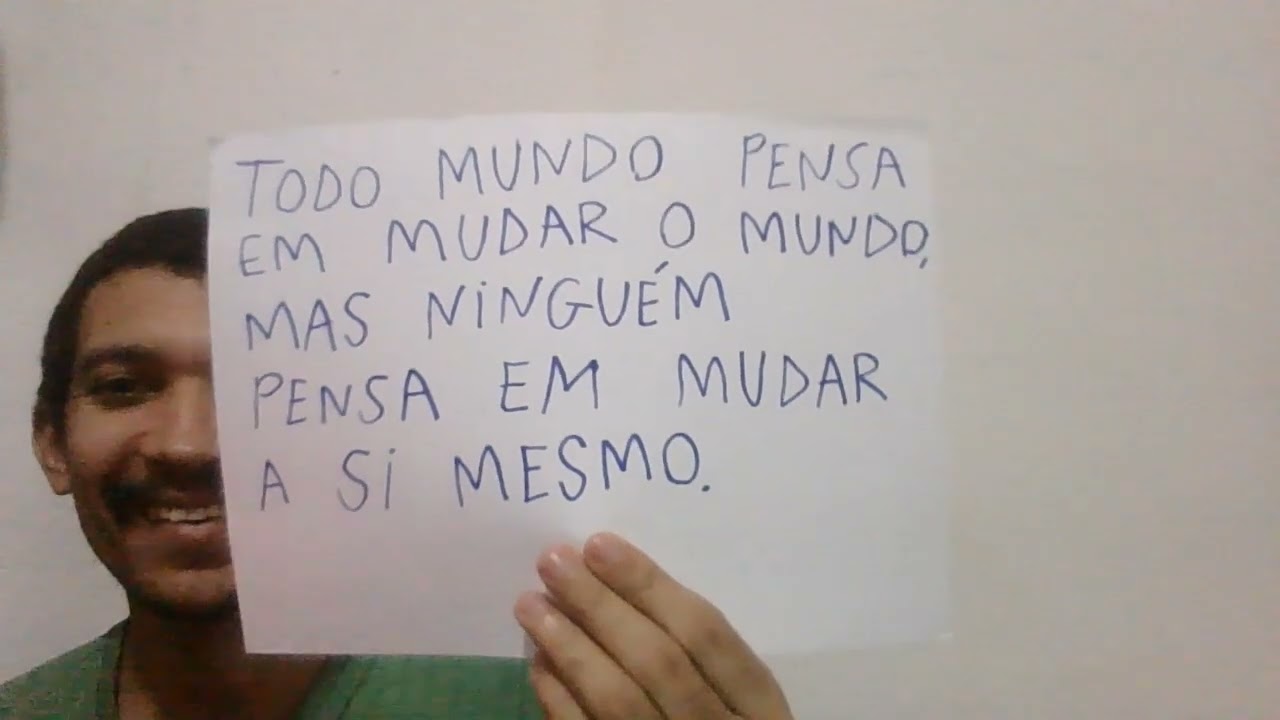 TODO MUNDO PENSA
EM MUDAR O MUNDO,
MAS NINGUÉM
PENSA EM MUDAR
A SI MESMO.